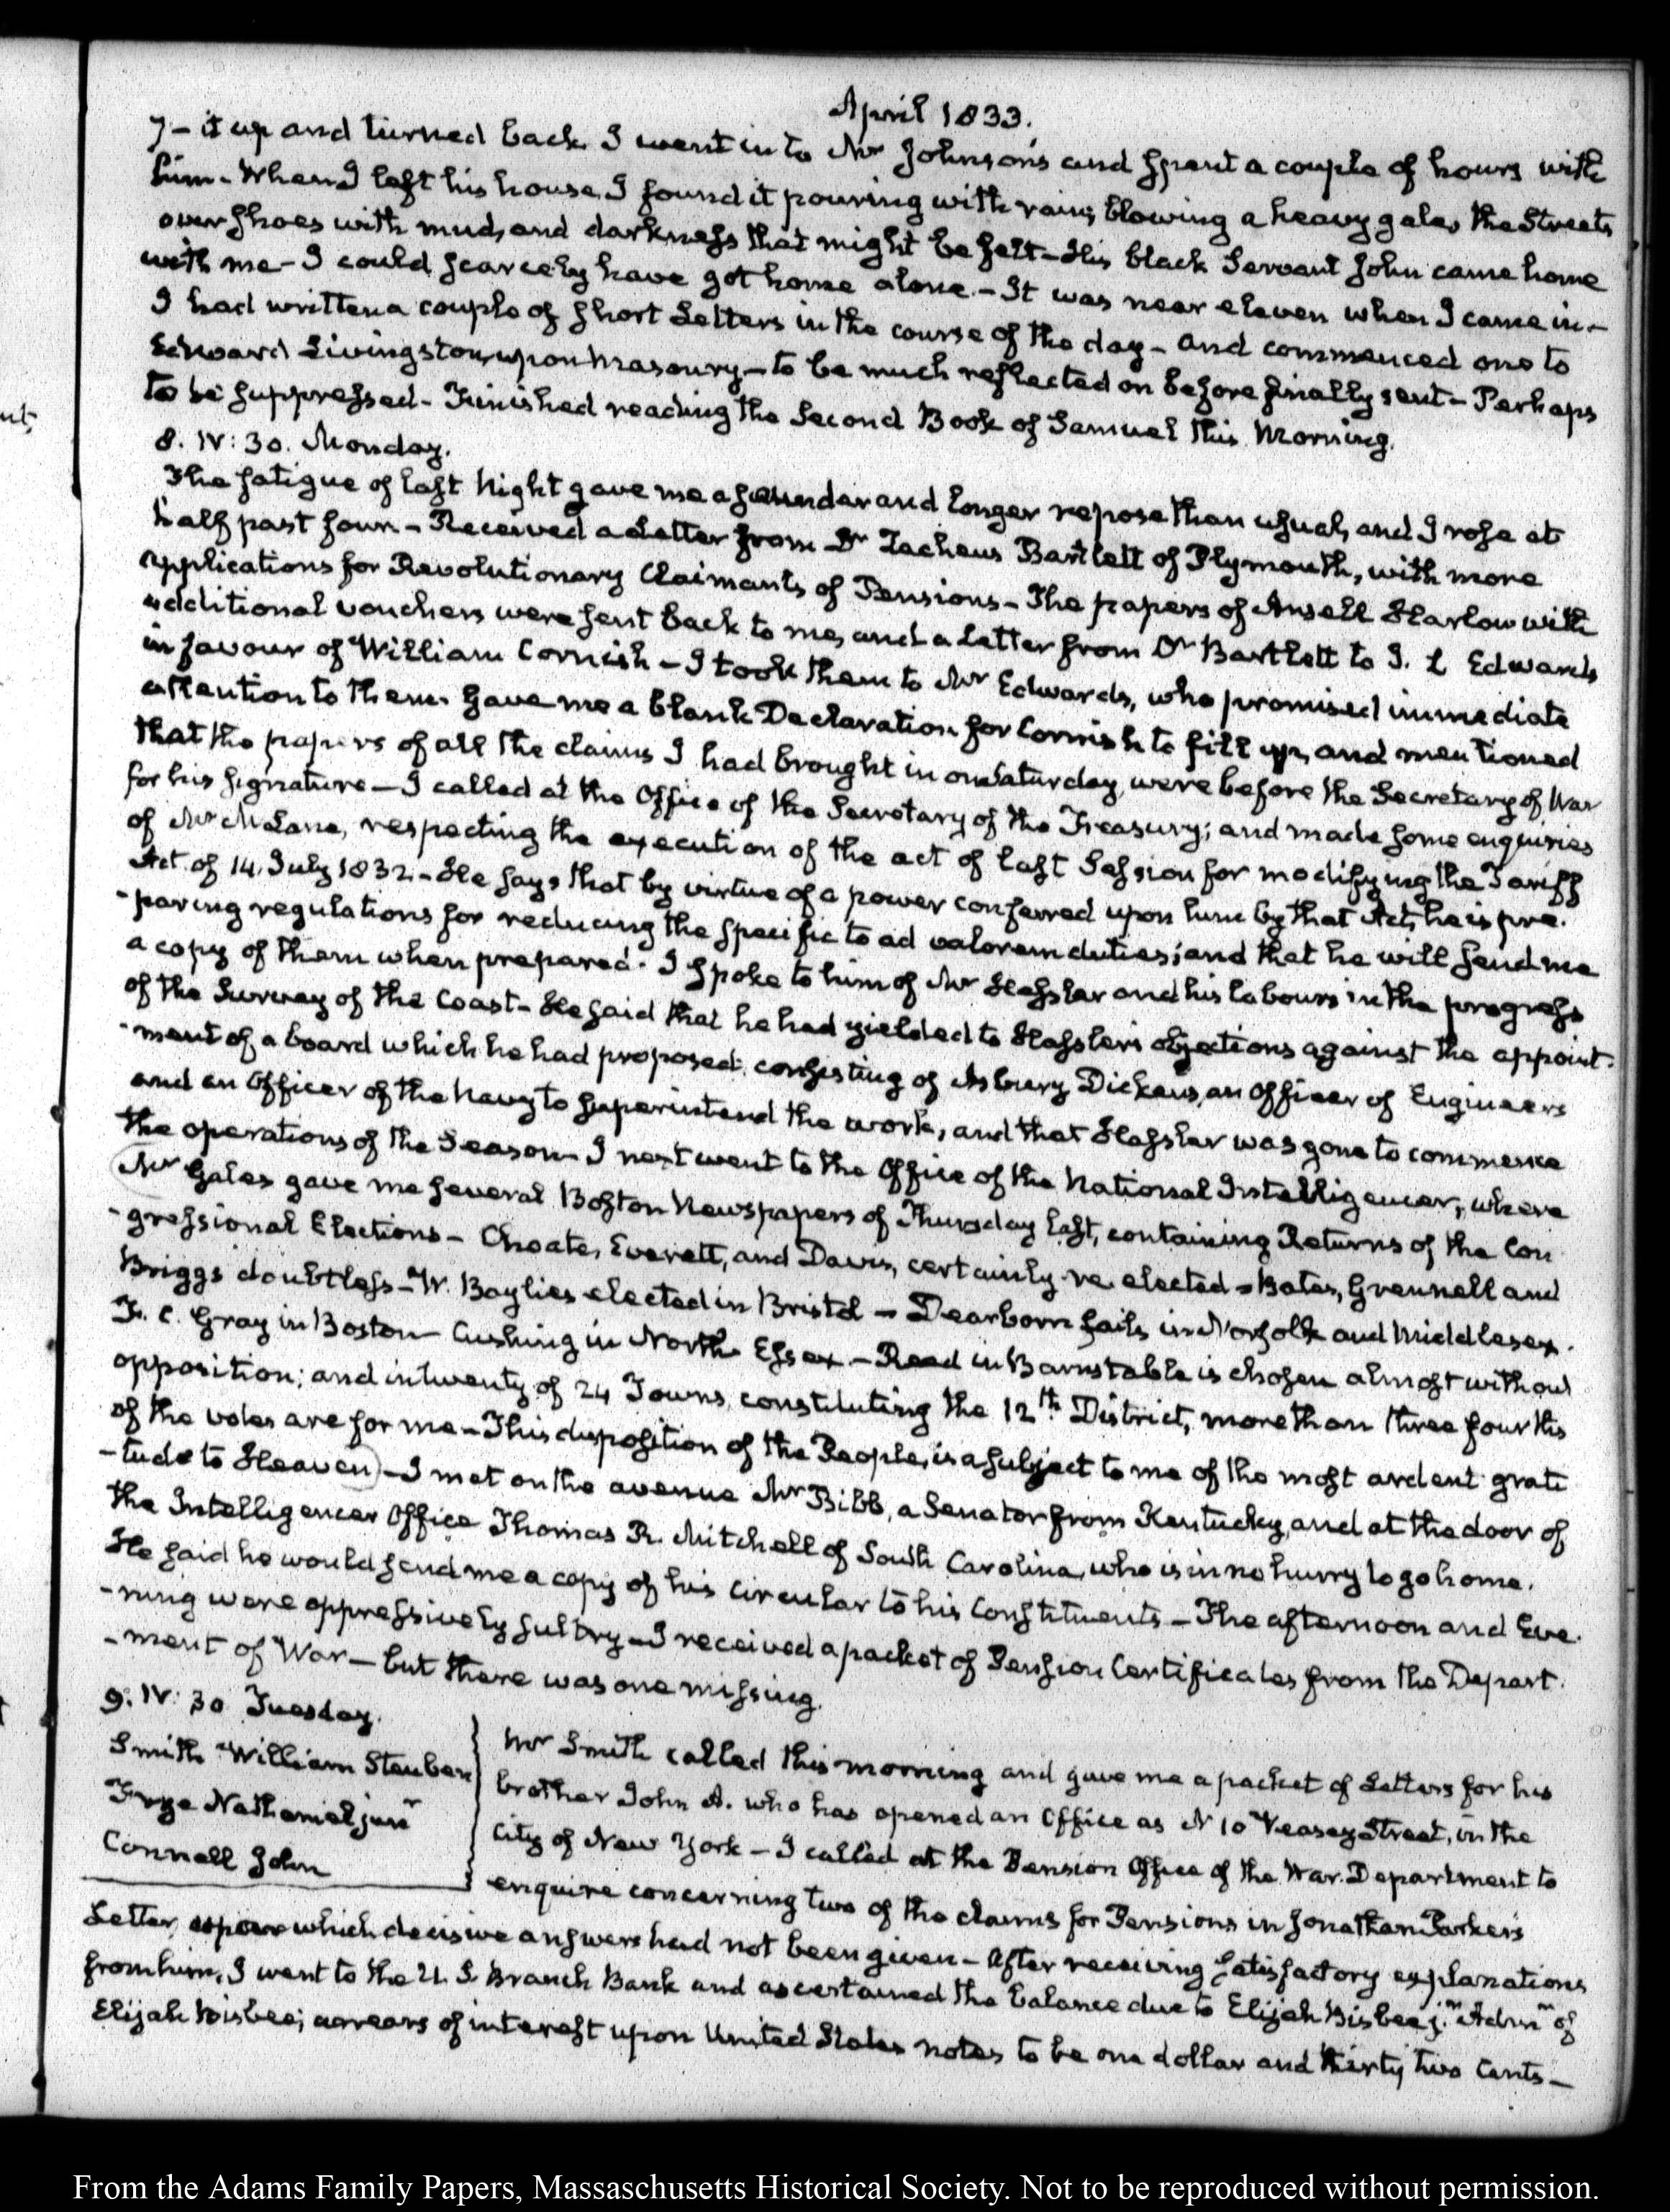 April 1833.
7 - it up and turned back. I went in to Mr Johnson's and spent a couple of hours with
him. When I left his house, I found it pouring with rain, blowing a heavy gale, the Streets
over shoes with mud, and darkness that might be felt - His black Servant John came home
with me - I could scarcely have got home alone. - It was near eleven when I came in. -
I had written a couple of short Letters in the course of the day - and commenced one to
Edward Livingston, upon Masonry - to be much reflected on before finally sent - Perhaps
to be suppressed - Finished reading the Second Book of Samuel this Morning.
8. IV: 30. Monday.
The fatigue of last Night gave me a sounder and longer repose than usual, and I rose at
half past four - Received a Letter from Dr Zacheus Bartlett of Plymouth, with more
applications for Revolutionary Claimants of Pensions - The papers of Ansell Harlow with
additional vouchers were sent back to me, and a Letter from Dr Bartlett to J. L Edwards
in favour of William Cornish - I took them to Mr Edwards, who promised immediate
attention to them. Gave me a blank Declaration for Cornish to fill up, and mentioned
that the papers of all the claims I had brought in on Saturday, were before the Secretary of War
for his signature - I called at the Office of the Secretary of the Treasury; and made some enquiries
of Mr McLane, respecting the execution of the act of last Session for modifying the Tariff
Act of 14. July 1832 - He says that by virtue of a power conferred upon him by that Act, he is pre-
-paring regulations for reducing the specific to ad valorem duties; and that he will send me
a copy of them when prepared. I spoke to him of Mr Hassler and his labours in the progress
of the Survey of the Coast - He said that he had yielded to Hassler's objections against the appoint-
-ment of a board which he had proposed, consisting of Asbury Dickens, an Officer of Engineers
and an Officer of the Navy to superintend the work, and that Hassler was gone to commence
the operations of the Season - I next went to the Office of the National Intelligencer, where
Mr Gales gave me several Boston Newspapers of Thursday last, containing Returns of the Con-
-gressional Elections - Choate, Everett, and Davis, certainly re-elected - Bates, Grennell and
Briggs doubtless - W. Baylies elected in Bristol - Dearborn fails in Norfolk and Middlesex.
F. C. Gray in Boston - Cushing in North Essex - Reed in Barnstable is chosen almost without
opposition; and in twenty of 24 Towns, constituting the 12th District, more than three fourths
of the votes are for me - This disposition of the People, is a subject to me of the most ardent grati
-tude to Heaven) - I met on the avenue Mr Bibb, a Senator from Kentucky, and at the door of
the Intelligencer Office Thomas R. Mitchell of South Carolina, who is in no hurry to go home.
He said he would send me a copy of his circular to his Constituents - The afternoon and Eve-
-ning were oppressively sultry - I received a packet of Pension Certificates from the Depart-
-ment of War - but there was one missing.
9. IV: 30 Tuesday.
Smith William Steuben
Frye Nathaniel junr
Connell John
Mr Smith called this morning and gave me a packet of Letters for his
brother John A. who has opened an Office at N 10 Veasey Street, in the
City of New York - I called at the Pension Office of the War Department to
enquire concerning two of the claims for Pensions in Jonathan Parker's
Letter, upon which decisive answers had not been given - After receiving satisfactory explanations
from him, I went to the U. S. Branch Bank and ascertained the balance due to Elijah Bisbee jr. Admr of
Elijah Bisbee; arrears of interest upon United States notes to be one dollar and thirty two Cents -
From the Adams Family Papers, Massachusetts Historical Society. Not to be reproduced without permission.